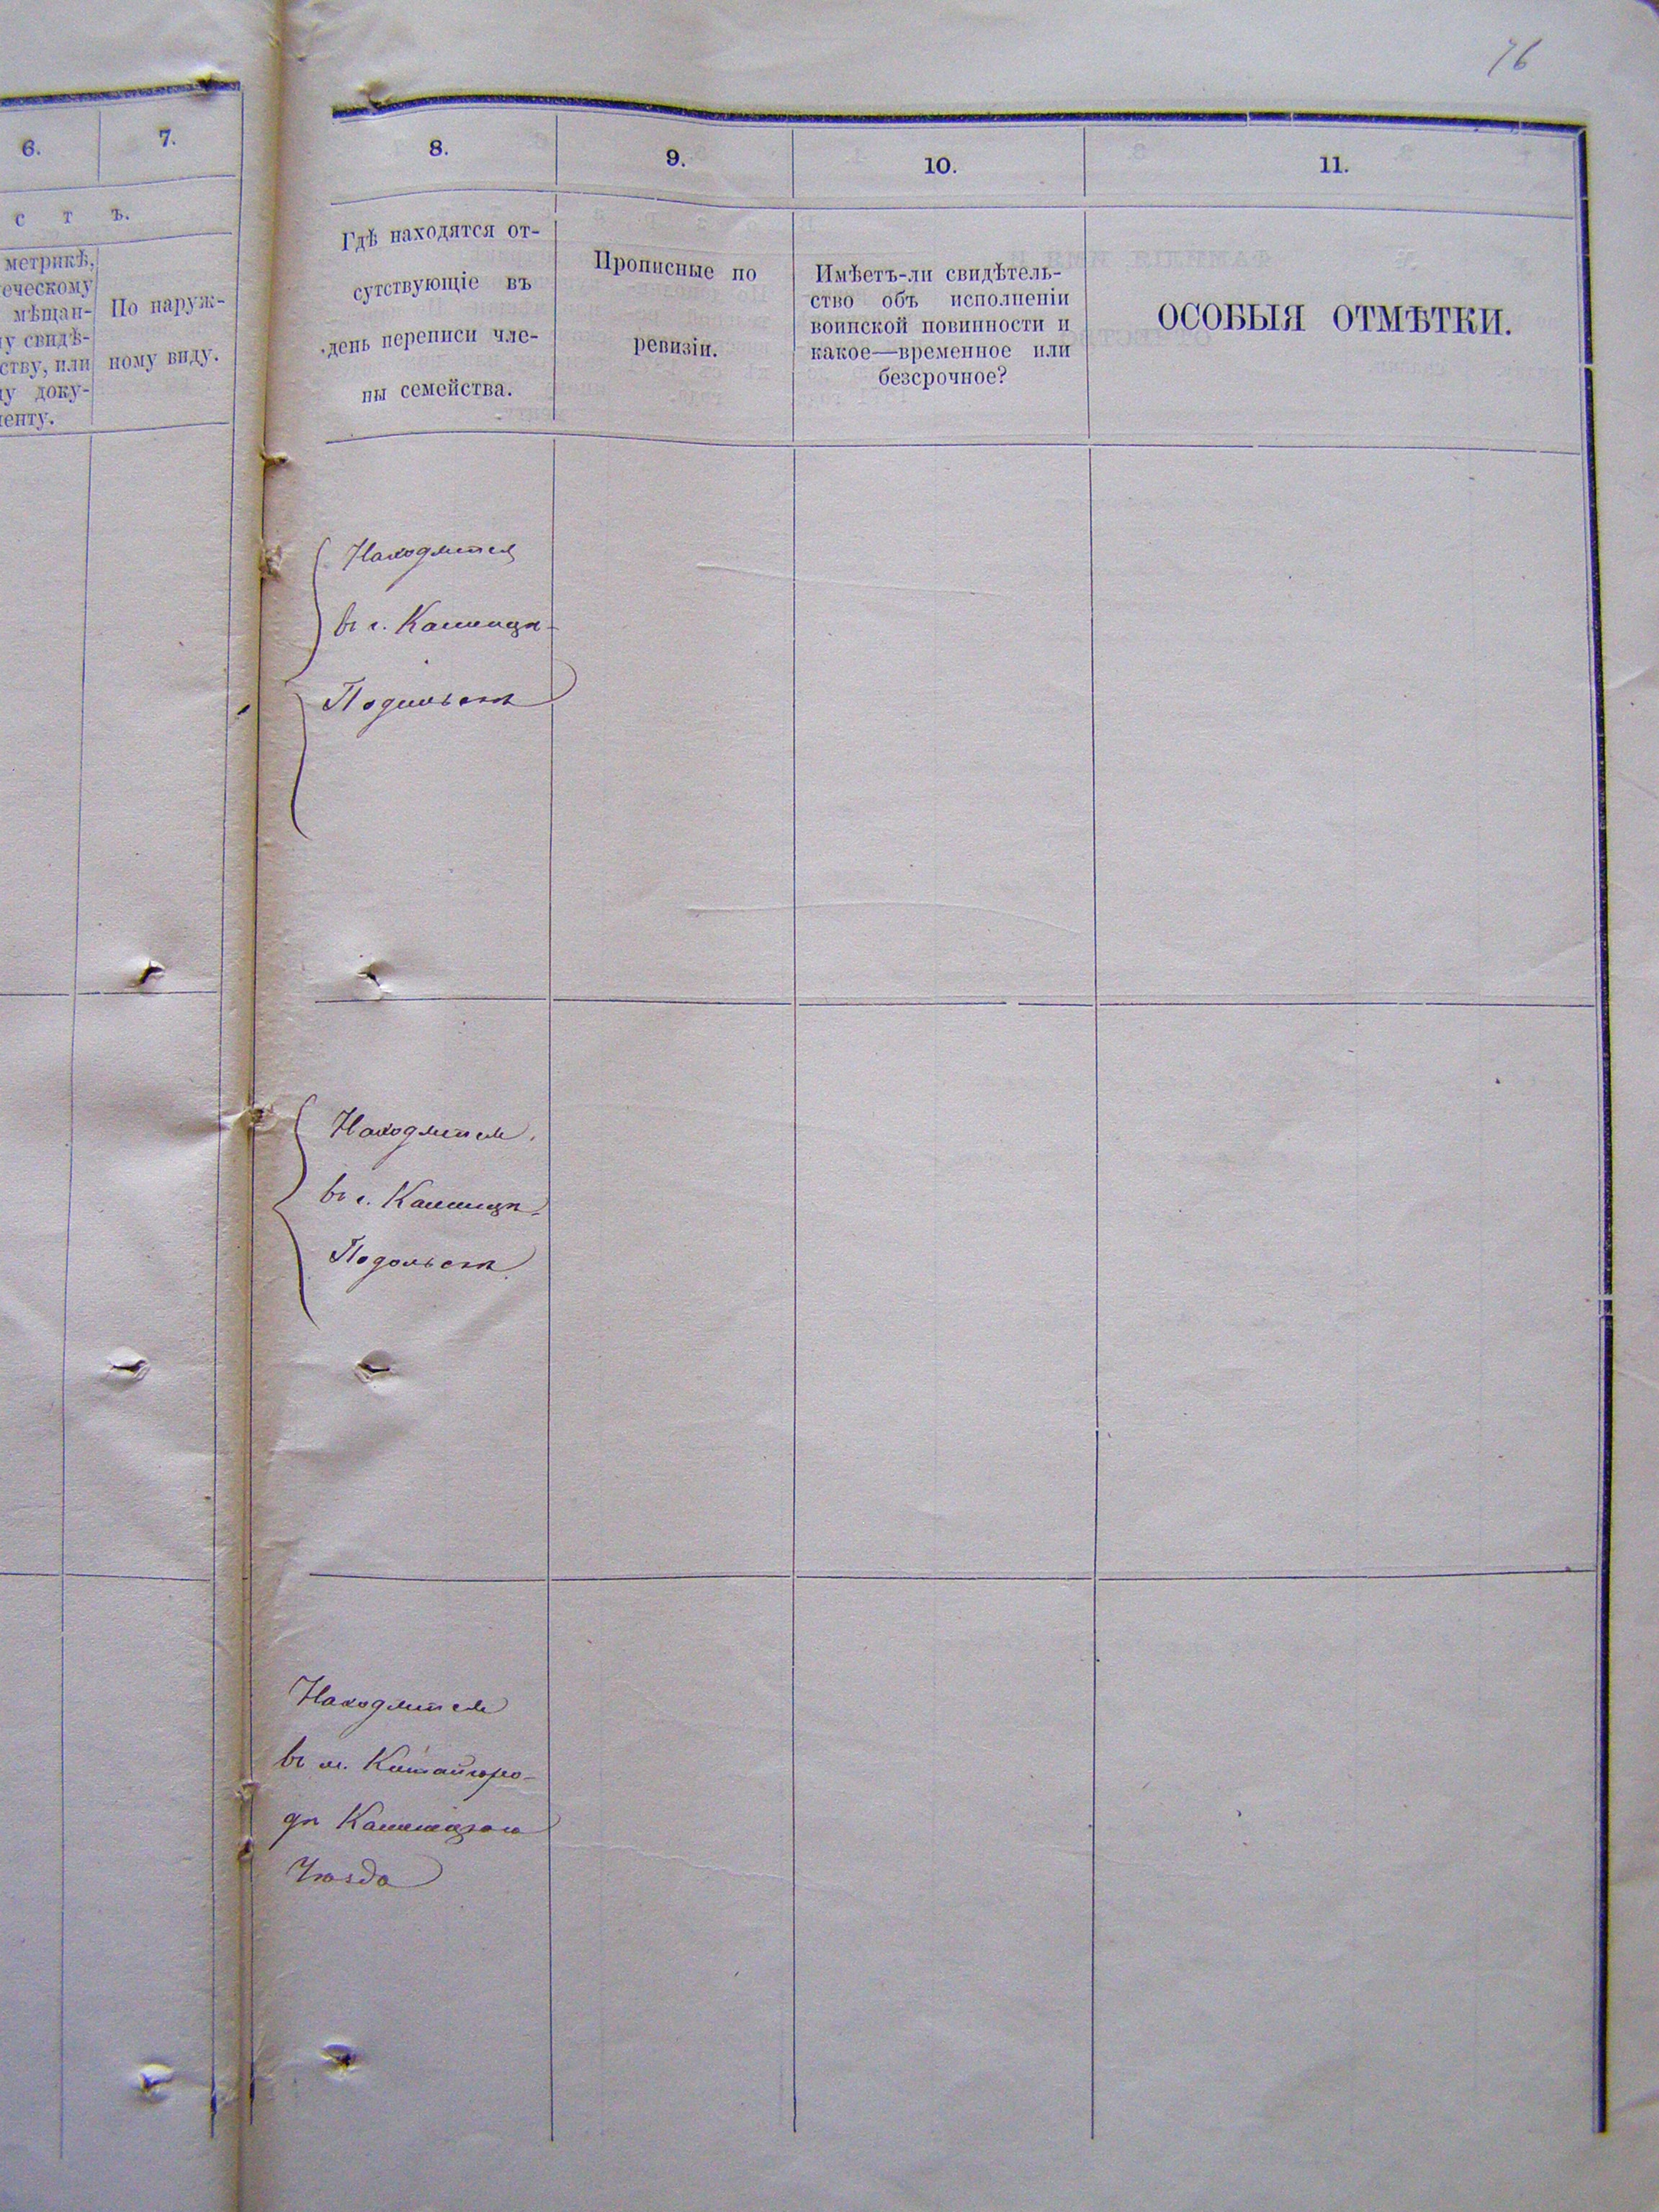 76
6.
7.
с т ъ.
метрикѣ,
еческому
мѣщан-
у свидѣ-
ству, или
у доку-
менту.
По наруж-
ному виду.
8.
9.
10.
11.
Гдѣ находятся от-
сутствующіе въ
день переписи чле-
ны семейства.
Прописные по
ревизіи.
Имѣетъ-ли свидѣтель-
ство объ исполненіи
воинской повинности и
какое—временное или
безсрочное?
ОСОБЫЯ ОТМѢТКИ.
Находятся
въ г. Каменцѣ-
Подольскѣ
Находятся
въ г. Каменцѣ-
Подольскѣ
Находятся
въ м. Китайгоро-
дѣ Каменецкаго
Уѣзда